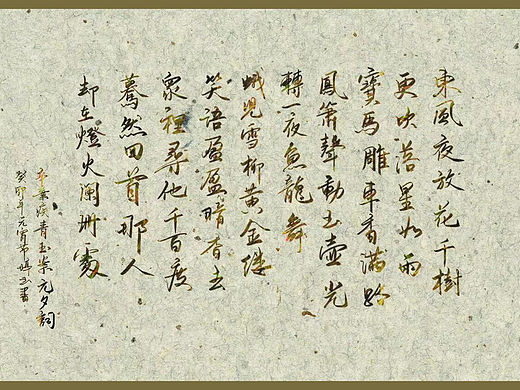 東風夜放花千樹
更吹落星如雨
寶馬雕車香滿路
鳳簫聲動玉壺光
轉一夜魚龍舞
蛾兒雪柳黃金縷
笑語盈盈暗香去
眾裡尋他千百度
驀然回首那人
却在燈火闌珊處
辛棄疾青玉案元夕詞
癸卯年元宵節書